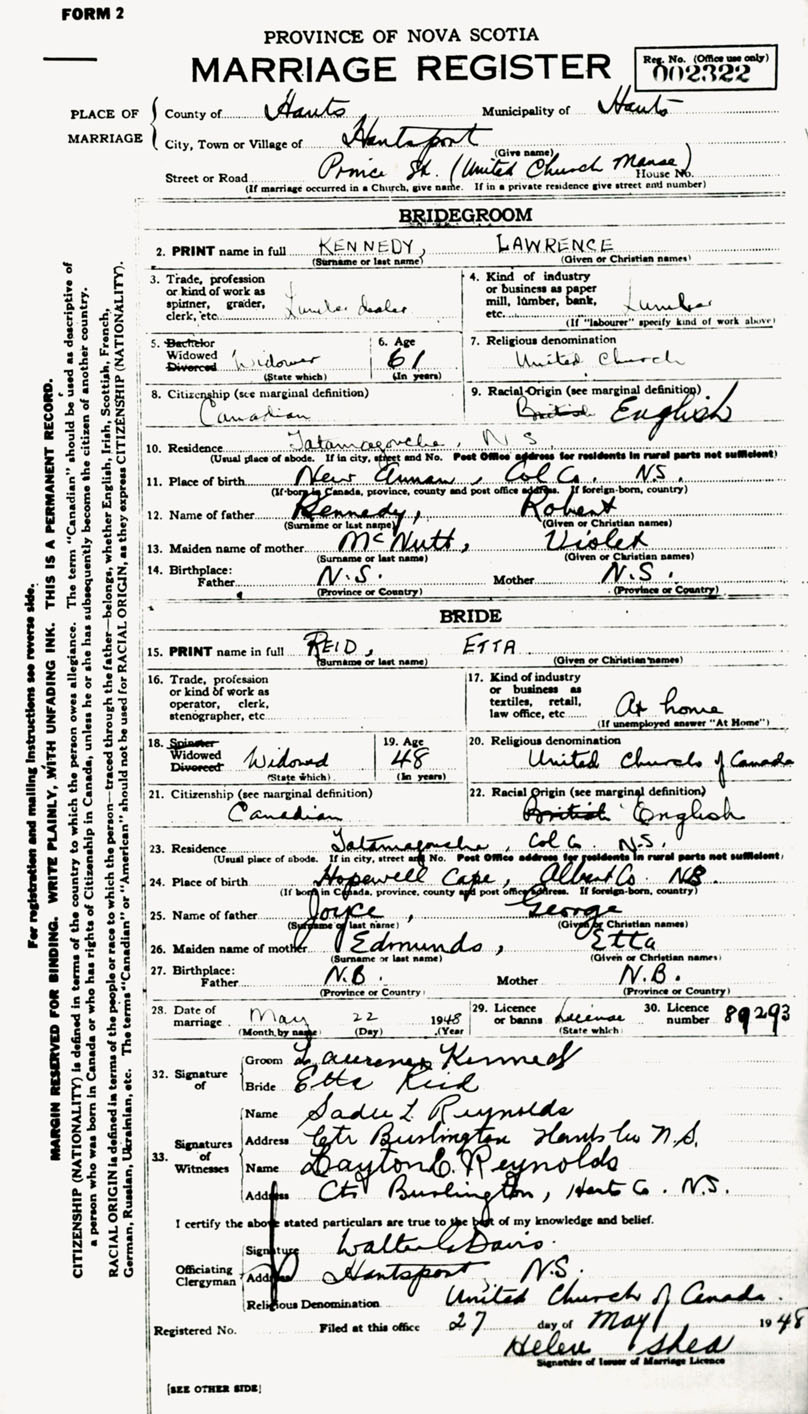 FORM 2
PROVINCE OF NOVA SCOTIA
MARRIAGE REGISTER
Reg. No. (Office use only)
002322
PLACE OF MARRIAGE
County of Hants Municipality of Hants
City, Town or Village of Hantsport
(Give name)
Street or Road Prince St. (United Church Manse) House No.
(If marriage occurred in a Church, give name. If in a private residence give street and number)
BRIDEGROOM
2. PRINT name in full KENNEDY, LAWRENCE
(Surname or last name) (Given or Christian names)
3. Trade, profession or kind of work as spinner, grader, clerk, etc. Lumber dealer
4. Kind of industry or business as paper mill, lumber, bank, etc. Lumber
(If "labourer" specify kind of work above)
5. Bachelor Widowed Divorced Widower
(State which)
6. Age 61
(In years)
7. Religious denomination
United Church
8. Citizenship (see marginal definition)
Canadian
9. Racial Origin (see marginal definition)
British English
10. Residence Tatamagouche, N S
(Usual place of abode. If in city, street and No. Post Office address for residents in rural parts not sufficient)
11. Place of birth New Annan, Col Co. N.S.
(If born in Canada, province, county and post office address. If foreign-born, country)
12. Name of father Kennedy, Robert
(Surname or last name) (Given or Christian names)
13. Maiden name of mother McNutt, Violet
(Surname or last name) (Given or Christian names)
14. Birthplace:
Father N.S. Mother N.S.
(Province or Country) (Province or Country)
BRIDE
15. PRINT name in full REID, ETTA
(Surname or last name) (Given or Christian names)
16. Trade, profession or kind of work as operator, clerk, stenographer, etc
17. Kind of industry or business as textiles, retail, law office, etc At home
(If unemployed answer "At Home")
18. Spinster Widowed Divorced Widowed
(State which)
19. Age 48
(In years)
20. Religious denomination
United Church of Canada
21. Citizenship (see marginal definition)
Canadian
22. Racial Origin (see marginal definition)
British English
23. Residence Tatamagouche, Col Co. N.S.
(Usual place of abode. If in city, street and No. Post Office address for residents in rural parts not sufficient)
24. Place of birth Hopewell Cape, Albert Co. NB.
(If born in Canada, province, county and post office address. If foreign-born, country)
25. Name of father Joyce, George
(Surname or last name) (Given or Christian names)
26. Maiden name of mother Edmunds, Etta
(Surname or last name) (Given or Christian names)
27. Birthplace:
Father N.B. Mother N.B.
(Province or Country) (Province or Country)
28. Date of marriage May 22 1948
(Month, by name) (Day) (Year
29. Licence or banns License
(State which)
30. Licence number 89293
32. Signature of
Groom Lawrence Kennedy
Bride Etta Reid
33. Signatures of Witnesses
Name Sadie L Reynolds
Address Ctr Burlington Hants Co N.S.
Name Layton E. Reynolds
Address Ctr Burlington, Hants Co. N.S.
I certify the above stated particulars are true to the best of my knowledge and belief.
Officiating Clergyman
Signature Walter G Davis.
Address Hantsport, N.S.
Religious Denomination United Church of Canada.
Registered No. Filed at this office 27 day of May 1948
Helene Shea
Signature of Issuer of Marriage Licence
[SEE OTHER SIDE]
For registration and mailing instructions see reverse side.
MARGIN RESERVED FOR BINDING. WRITE PLAINLY, WITH UNFADING INK. THIS IS A PERMANENT RECORD.
CITIZENSHIP (NATIONALITY) is defined in terms of the country to which the person owes allegiance. The term "Canadian" should be used as descriptive of
a person who was born in Canada or who has rights of Citizenship in Canada, unless he or she has subsequently become the citizen of another country.
RACIAL ORIGIN is defined in terms of the people or race to which the person—traced through the father—belongs, whether English, Irish, Scottish, French,
German, Russian, Ukrainian, etc. The terms "Canadian" or "American" should not be used for RACIAL ORIGIN, as they express CITIZENSHIP (NATIONALITY).